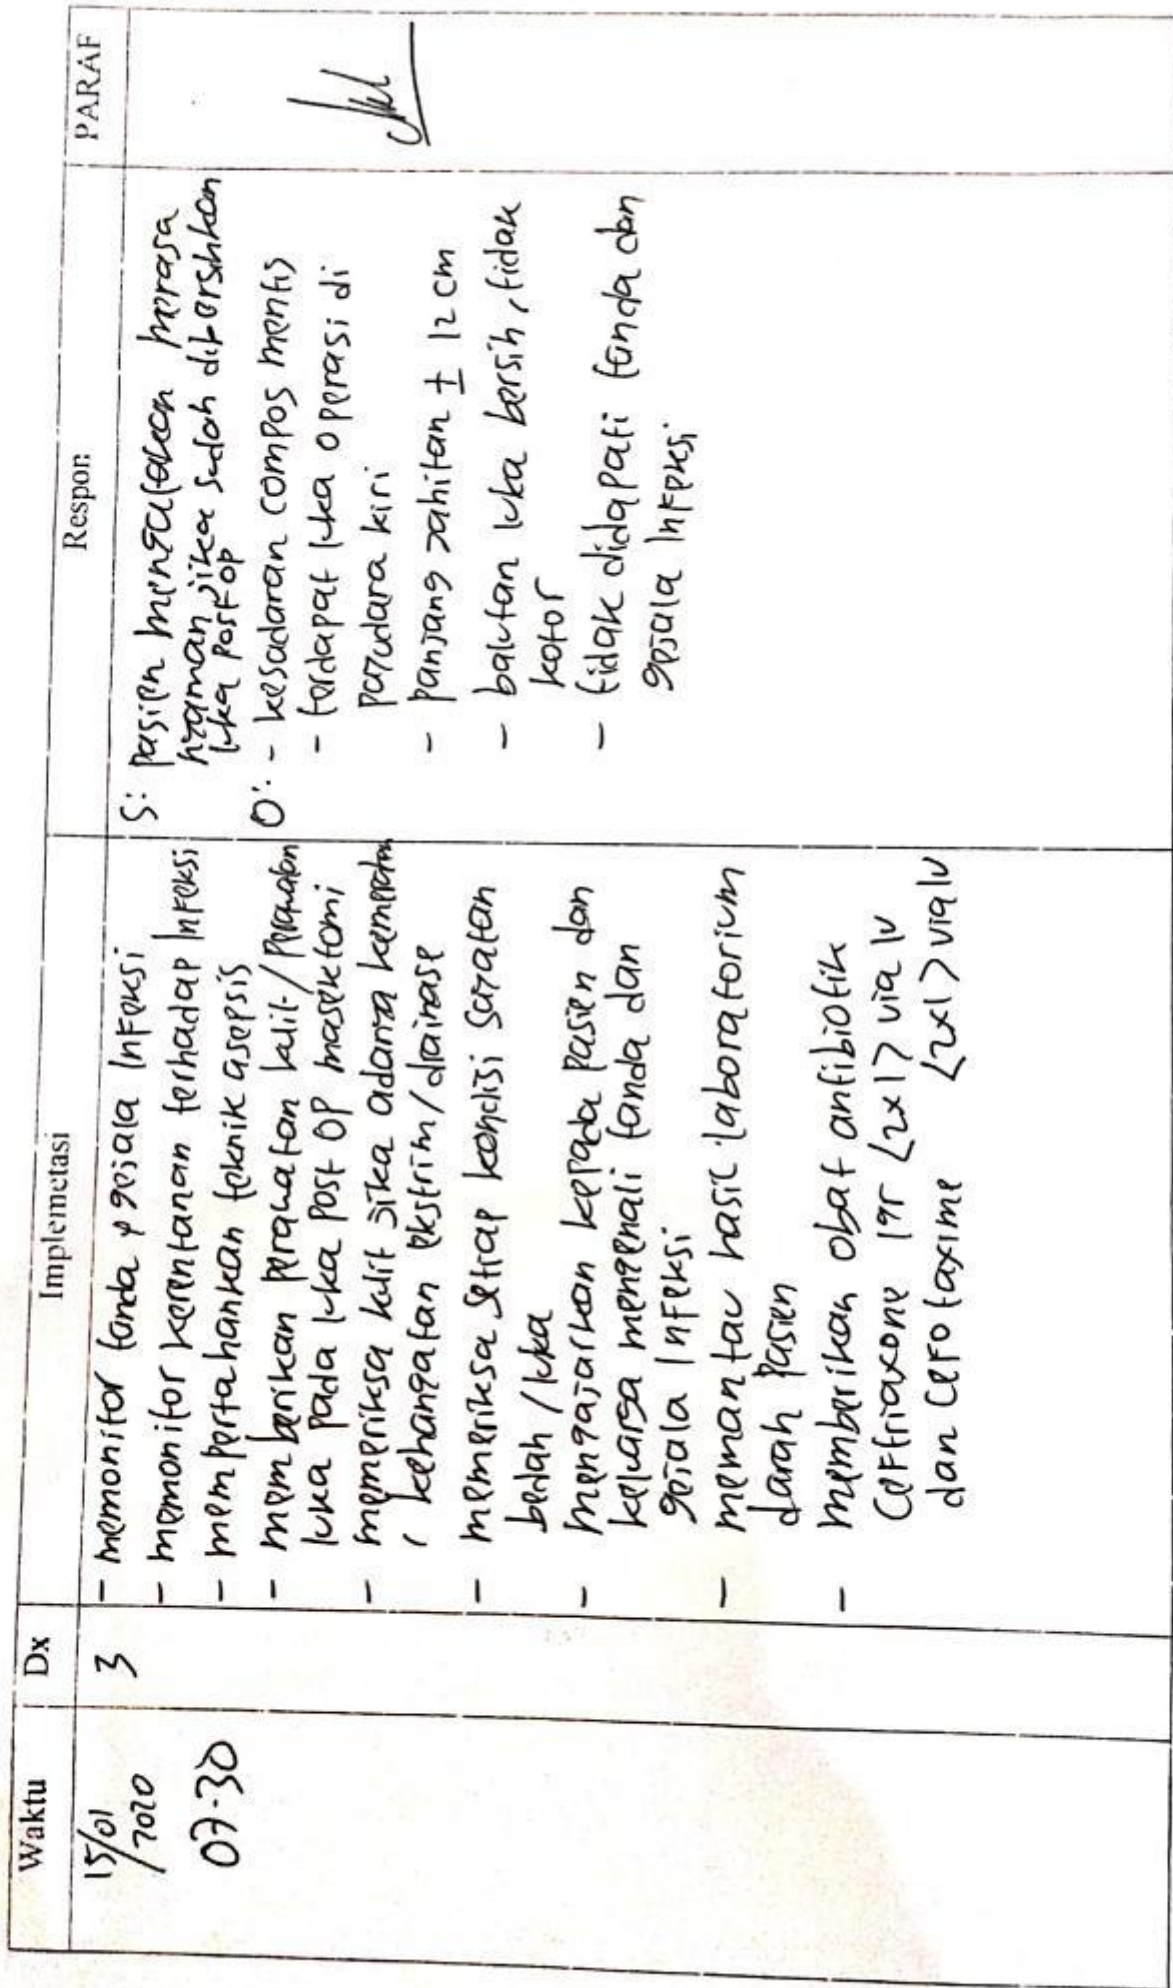 Waktu Dx Implemetasi Respon PARAF
15/01
/2020
07.30
3
- memonitor tanda & gejala Infeksi
- memonitor kerentanan terhadap Infeksi
- mempertahankan teknik asepsis
- memberikan perawatan kulit / Perawatan
luka pada luka post OP masektomi
- memeriksa kulit jika adanya kemerahan
, kehangatan ekstrim / drainase
- memeriksa setiap kondisi sayatan
bedah / luka
- mengajarkan kepada pasien dan
keluarga mengenali tanda dan
gejala Infeksi
- memantau hasil laboratorium
darah pasien
- memberikan obat antibiotik
Ceftriaxone 1gr (2x1) via IV
dan Cefotaxime (2x1) via IV
S: pasien mengatakan merasa
nyaman jika sudah dibersihkan
luka post op
O: - kesadaran compos mentis
- terdapat luka operasi di
payudara kiri
- panjang jahitan ± 12 cm
- balutan luka bersih, tidak
kotor
- tidak didapati tanda dan
gejala Infeksi